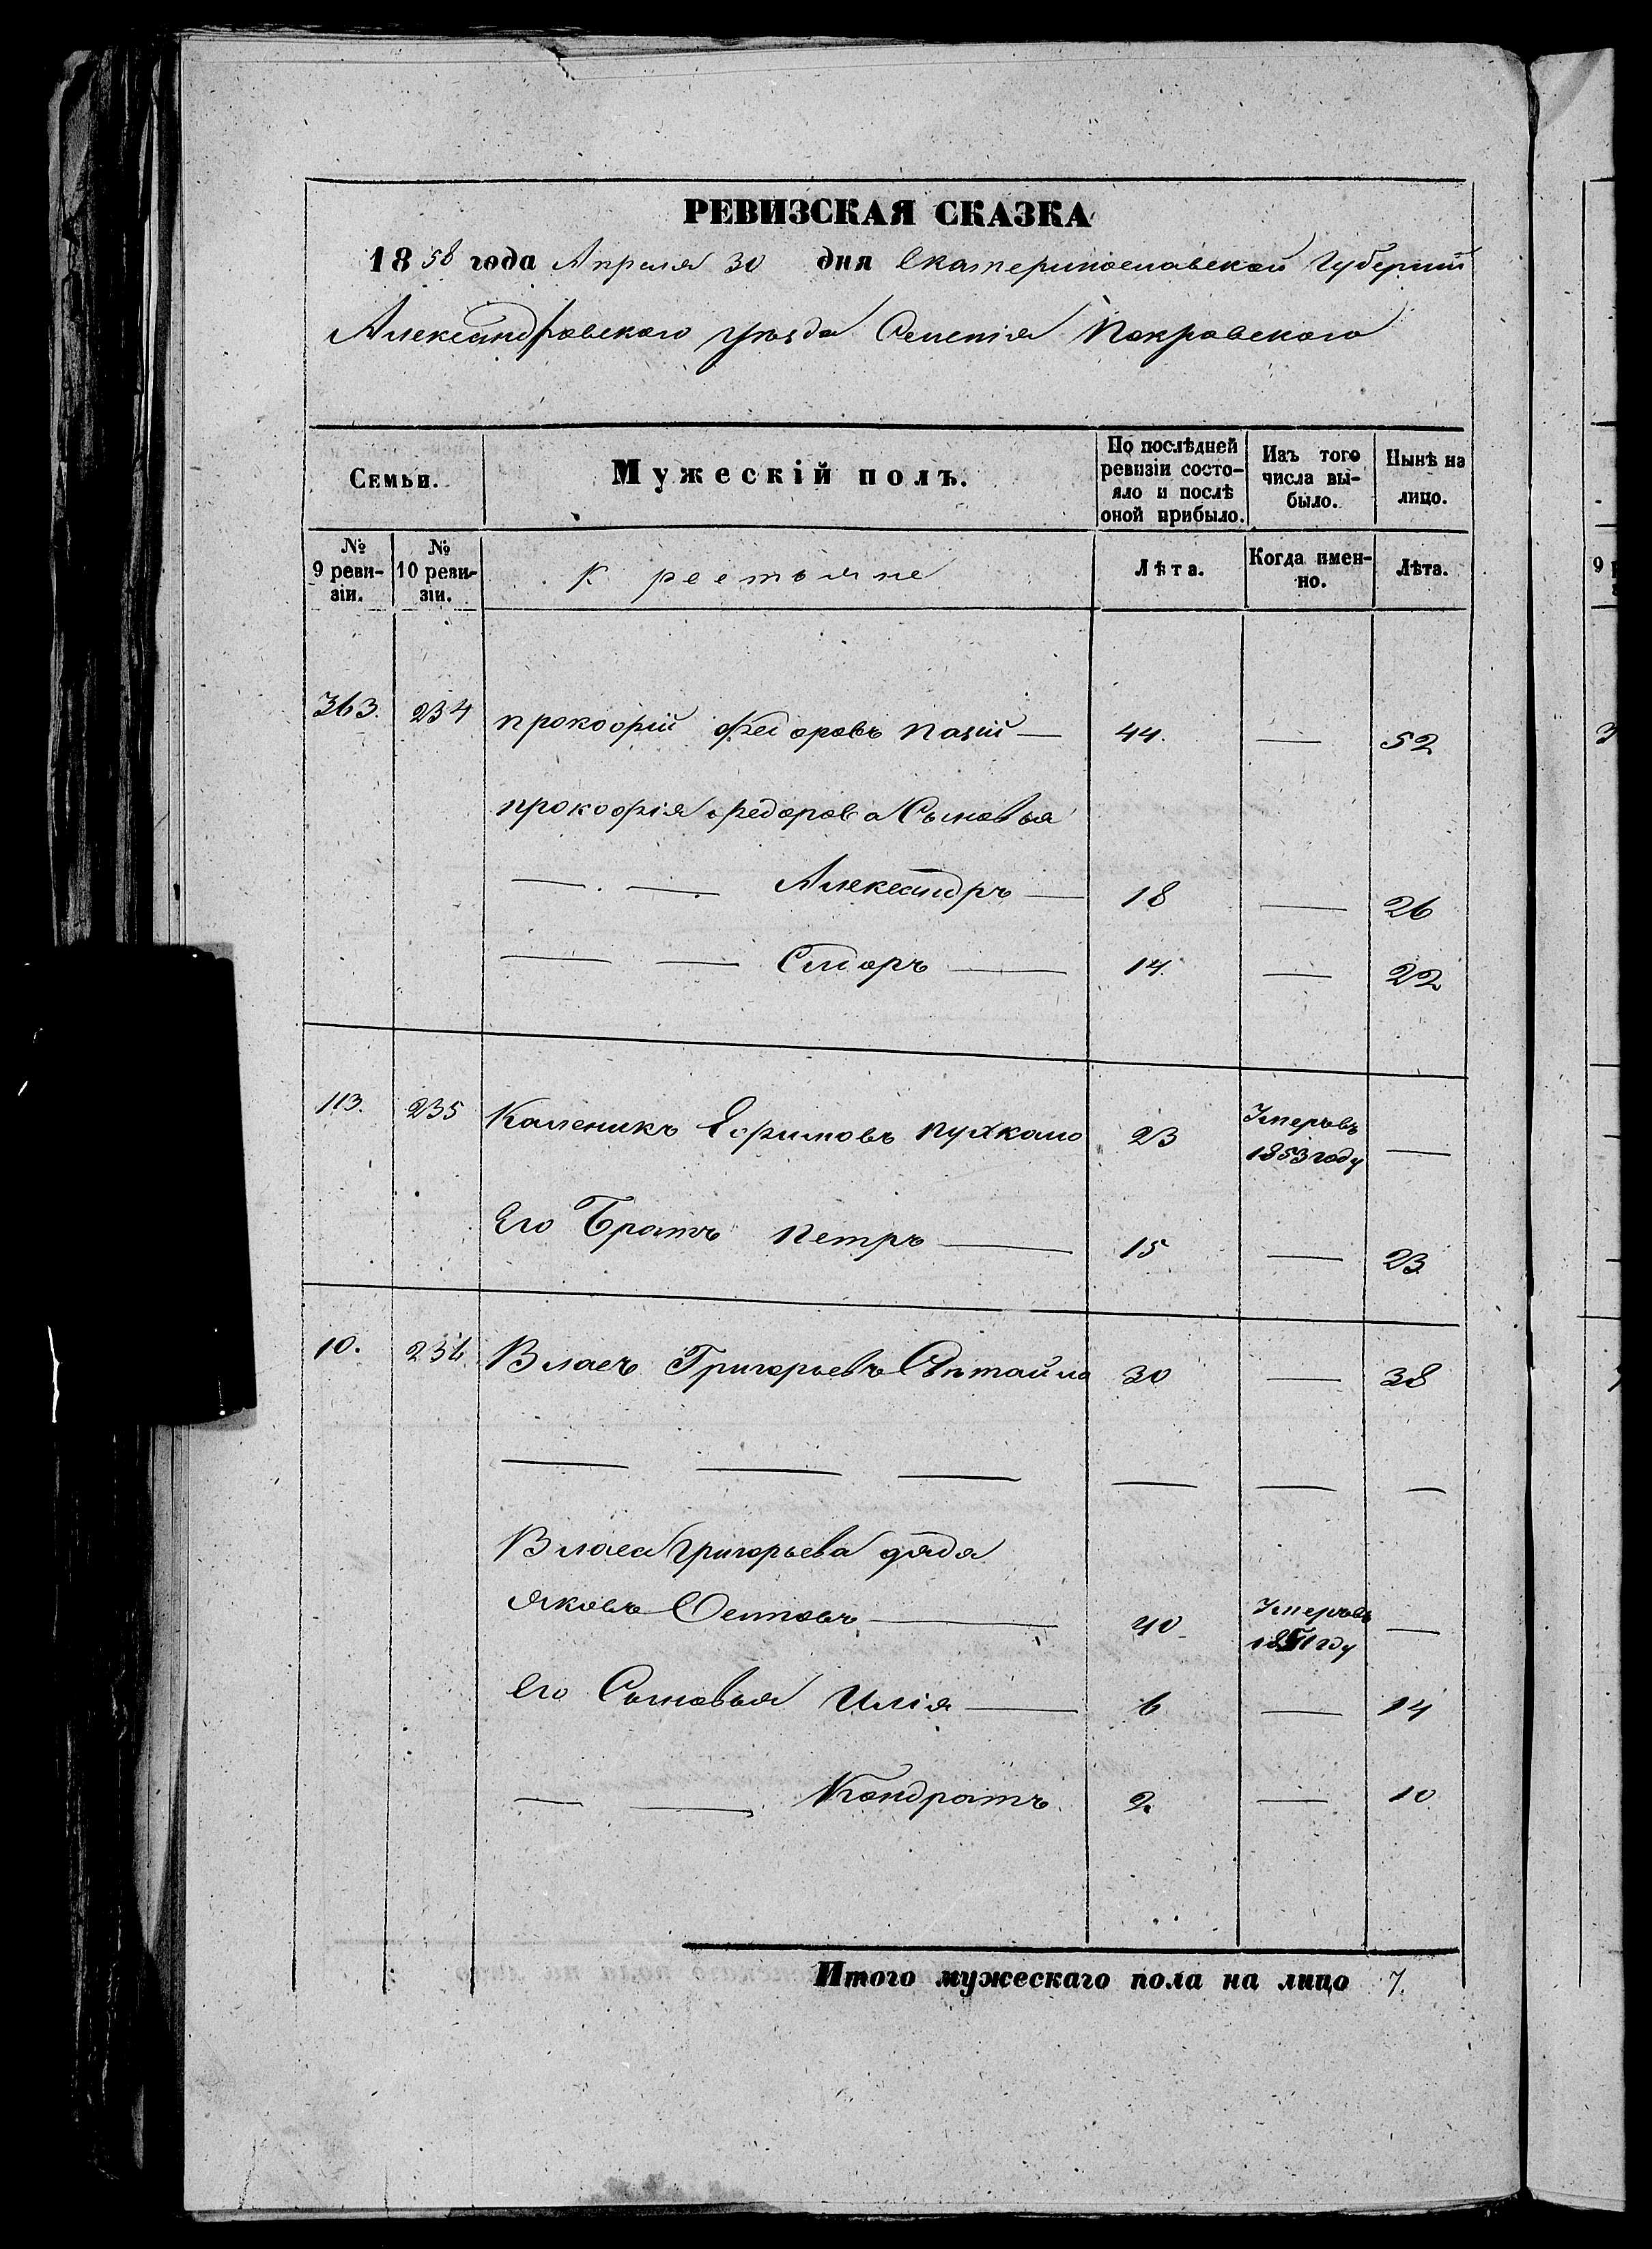 РЕВИЗСКАЯ СКАЗКА
1858 года Апреля 30 дня Екатеринославской Губернии
Александровского уѣзда Селенія Покровского
Семьи.
Мужескій полъ.
По послѣдней ревизіи состояло и послѣ оной прибыло.
Изъ того числа выбыло.
Нынѣ на лицо.
№ 9 ревизіи.
№ 10 ревизіи.
Крестьяне
Лѣта.
Когда именно.
Лѣта.
363. 234 Прокофій Федоровъ Пазій — 44. — 52
Прокофія Федорова Сыновья
— . — Александръ — 18 — 26
— — Сидоръ — 14. — 22
113. 235 Каленикъ Ефимовъ Пужкало 23 Умеръ въ 1853 году —
Его Братъ Петръ — 15 — 23
10. 236 Власъ Григорьевъ 30 — 38
— — — — — —
Власа Григорьева дядя
Яковъ Осиповъ — 40 Умеръ въ 1851 году —
Его Сыновья Илія — 6 — 14
— — Кондратъ. 2. — 10
Итого мужескаго пола на лицо 7.